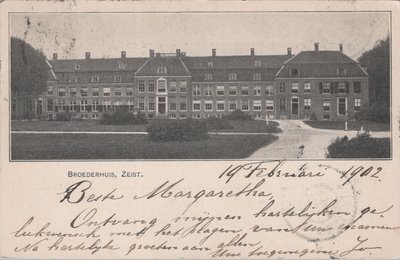 BROEDERHUIS, ZEIST.
19 Februari 1902
Beste Margaretha,
Ontvang mijnen hartelijken ge
lukwensch met het slagen van Uw examen
Na hartelijke groeten aan allen
Uw toegenegen Jo.